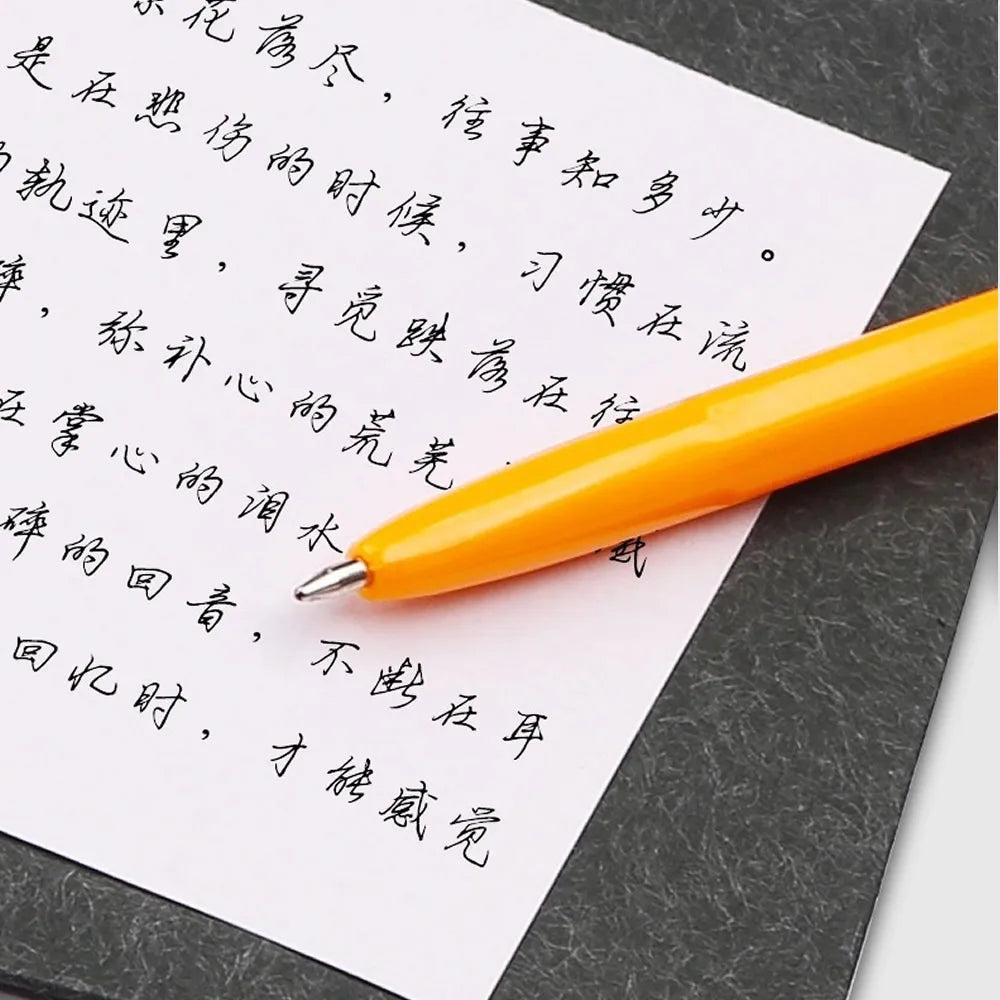 花落尽，往事知多少。
是在悲伤的时候，习惯在流
的轨迹里，寻觅跌落在往
碎，弥补心的荒芜，
在掌心的泪水
碎的回音，不断在耳
回忆时，才能感觉